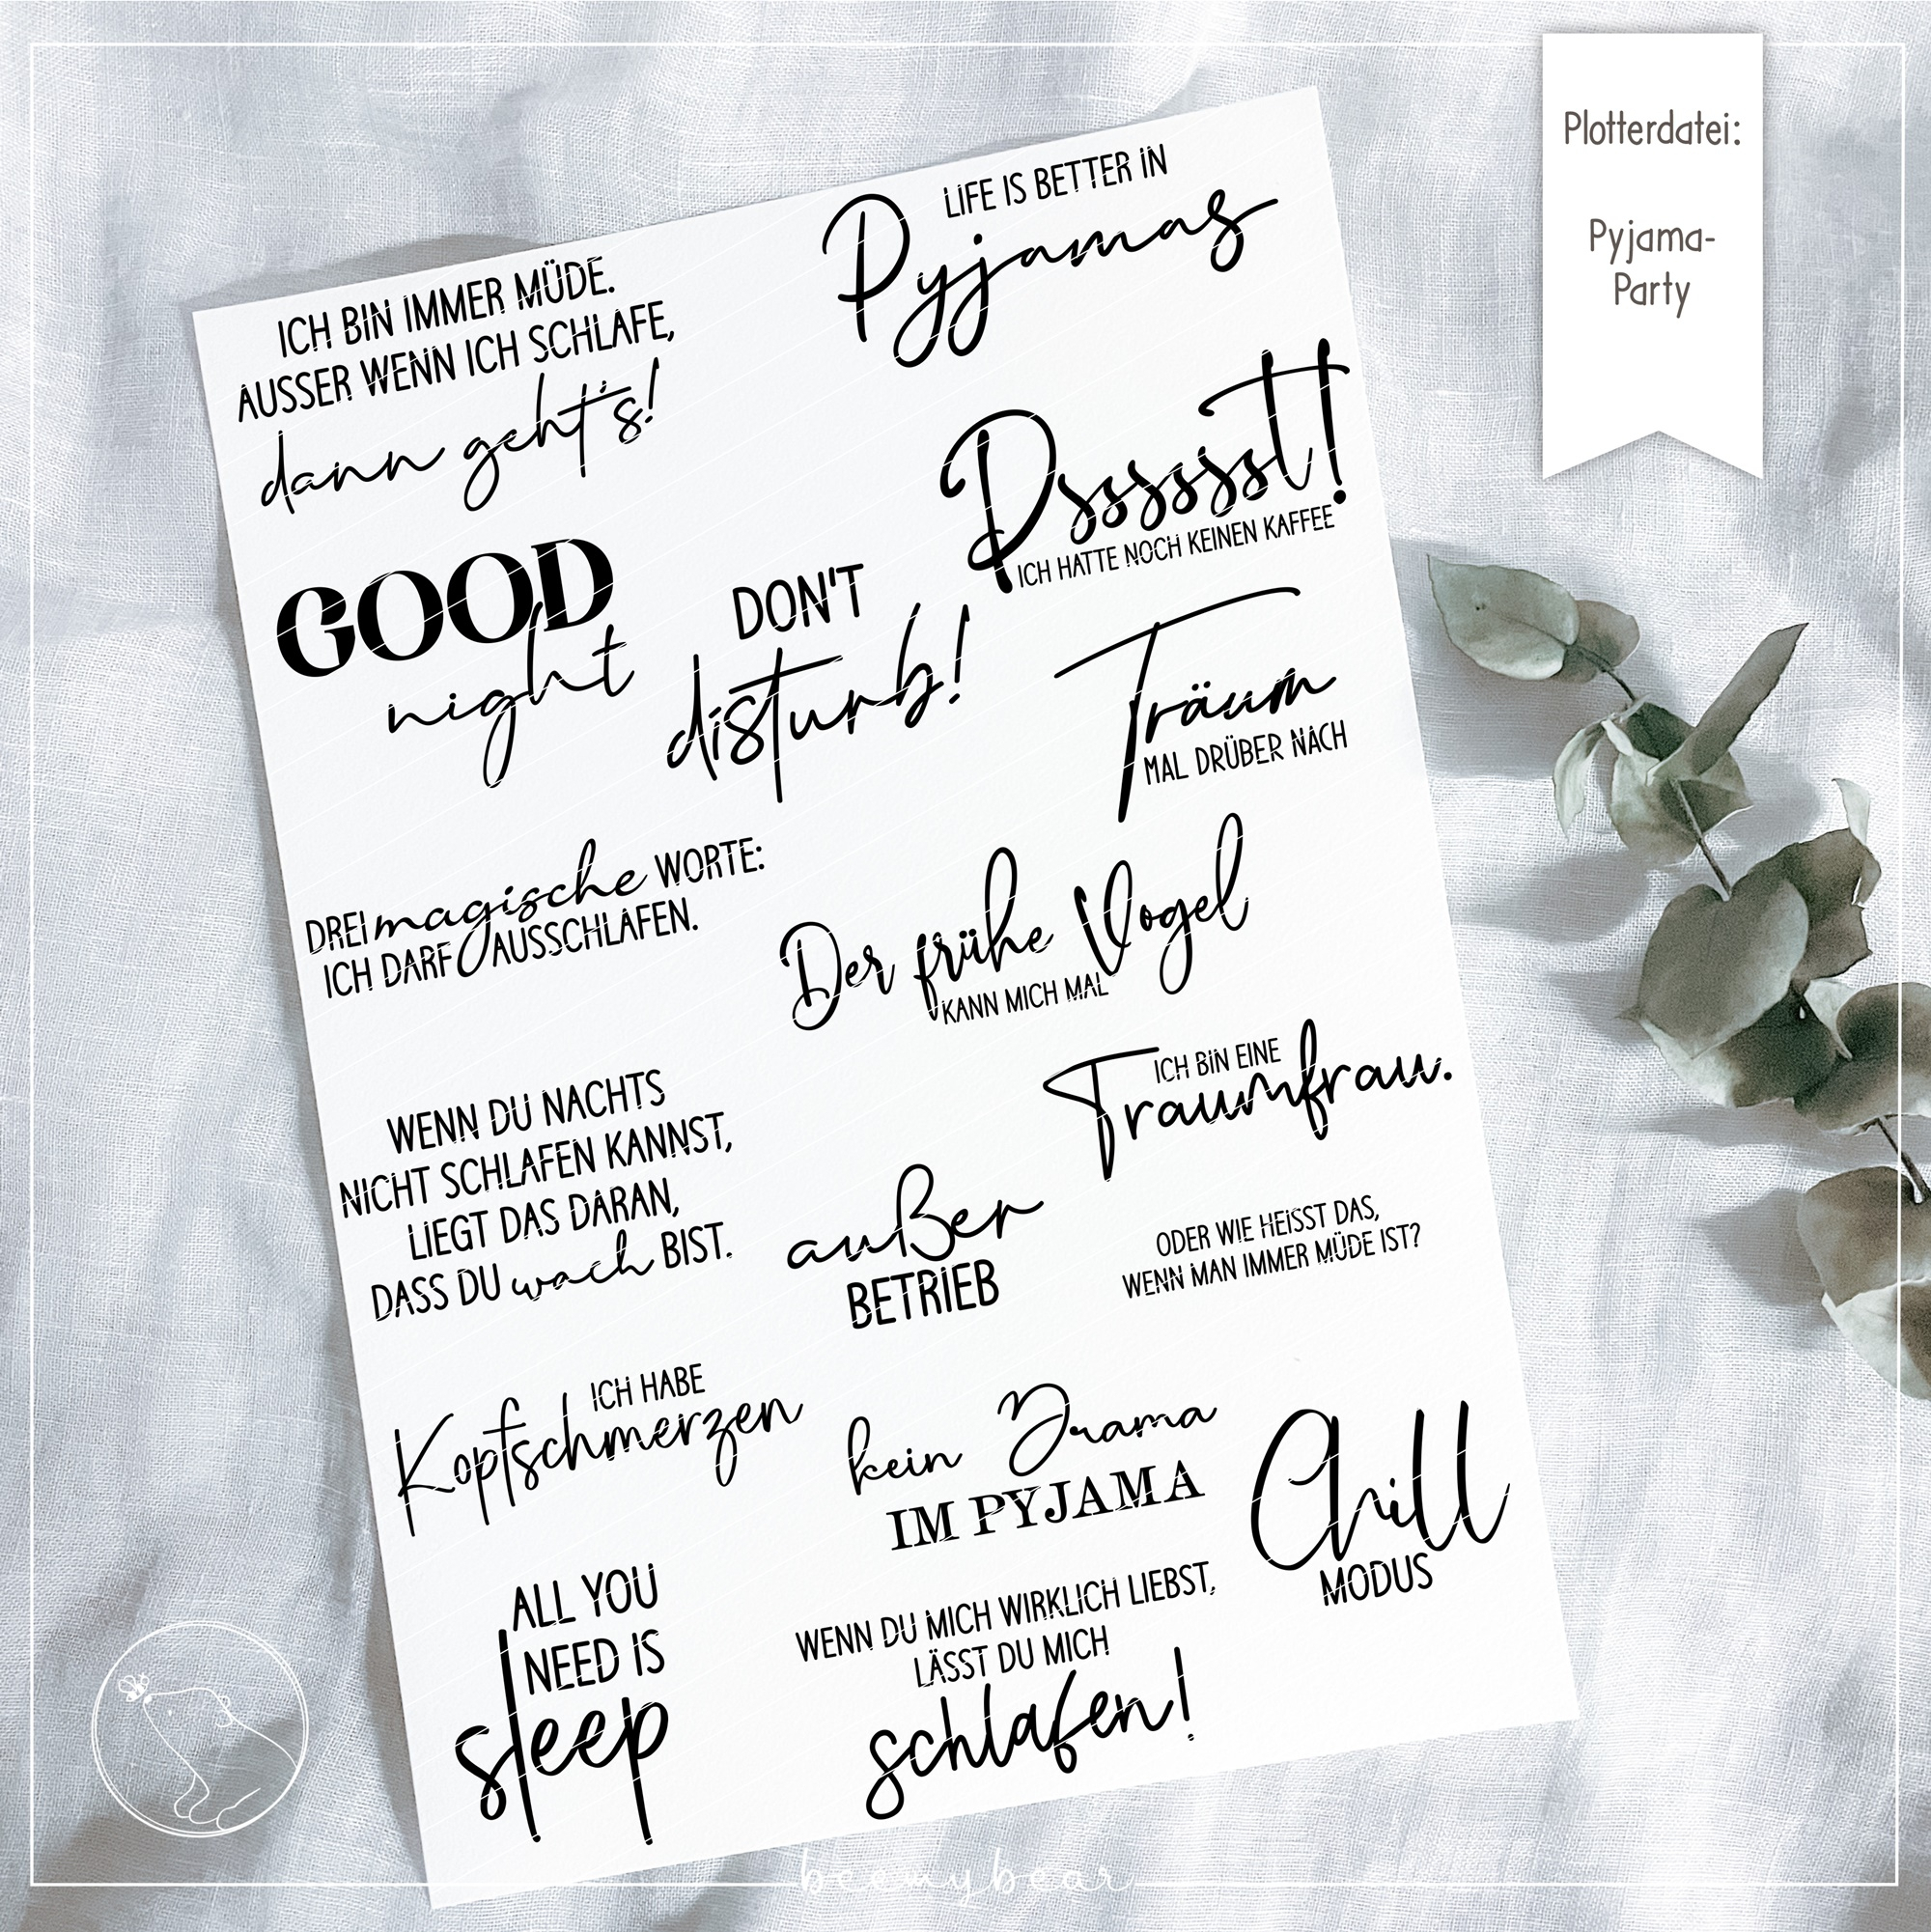 Plotterdatei:
Pyjama-
Party
LIFE IS BETTER IN
Pyjamas
ICH BIN IMMER MÜDE.
AUSSER WENN ICH SCHLAFE,
dann geht's!
Psssssst!
ICH HATTE NOCH KEINEN KAFFEE
GOOD
night
DON'T
disturb!
Träum
MAL DRÜBER NACH
DREI magische WORTE:
ICH DARF AUSSCHLAFEN.
Der frühe Vogel
KANN MICH MAL
WENN DU NACHTS
NICHT SCHLAFEN KANNST,
LIEGT DAS DARAN,
DASS DU wach BIST.
außer
BETRIEB
ICH BIN EINE
Traumfrau.
ODER WIE HEISST DAS,
WENN MAN IMMER MÜDE IST?
ICH HABE
Kopfschmerzen
kein Drama
IM PYJAMA
Chill
MODUS
ALL YOU
NEED IS
sleep
WENN DU MICH WIRKLICH LIEBST,
LÄSST DU MICH
schlafen!
beemybear